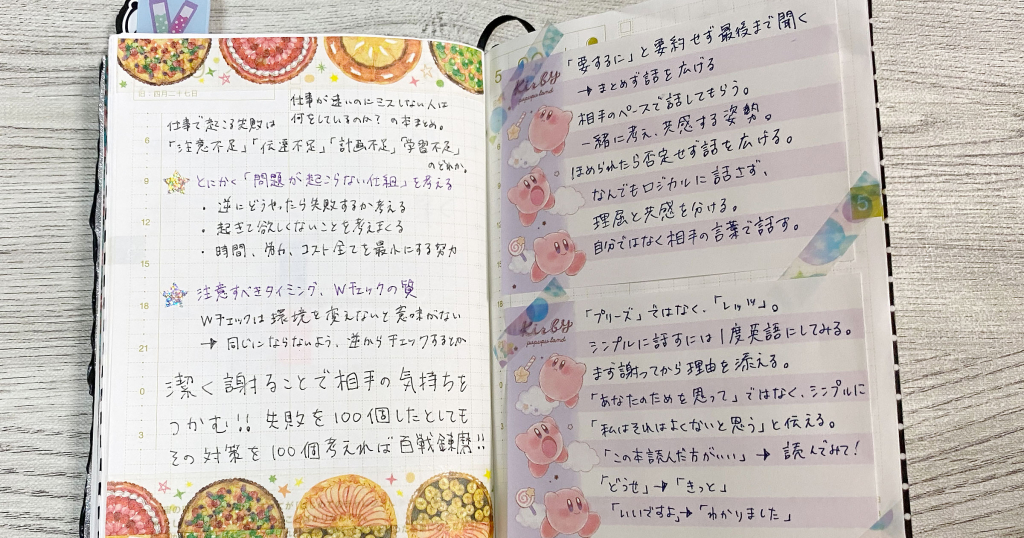 日|四月二十七日
仕事が速いのにミスしない人は
何をしているのか? の本まとめ。
仕事で起こる失敗は
「注意不足」「伝達不足」「計画不足」「学習不足」
のどれか。
とにかく「問題が起こらない仕組」を考える
・逆にどうやったら失敗するか考える
・起きて欲しくないことを考えまくる
・時間、労力、コスト全てを最小にする努力
注意すべきタイミング、Wチェックの質
Wチェックは環境を変えないと意味がない
→ 同じにならないよう、逆からチェックするとか
潔く謝することで相手の気持ちを
つかむ!! 失敗を100個したとしても
その対策を100個考えれば百戦錬磨!!
6
9
12
15
18
21
0
3
5
Kirby
pupupu land
「要するに」と要約せず最後まで聞く
→ まとめず話を広げる
相手のペースで話してもらう。
一緒に考え、共感する姿勢。
ほめられたら否定せず話を広げる。
なんでもロジカルに話さず、
理屈と共感を分ける。
自分ではなく相手の言葉で話す。
5
Kirby
pupupu land
「プリーズ」ではなく、「レッツ」。
シンプルに話すには1度英語にしてみる。
まず謝ってから理由を添える。
「あなたのためを思って」ではなく、シンプルに
「私はそれはよくないと思う」と伝える。
「この本読んだ方がいい」→ 読んでみて!
「どうせ」→「きっと」
「いいですよ」→「わかりました」